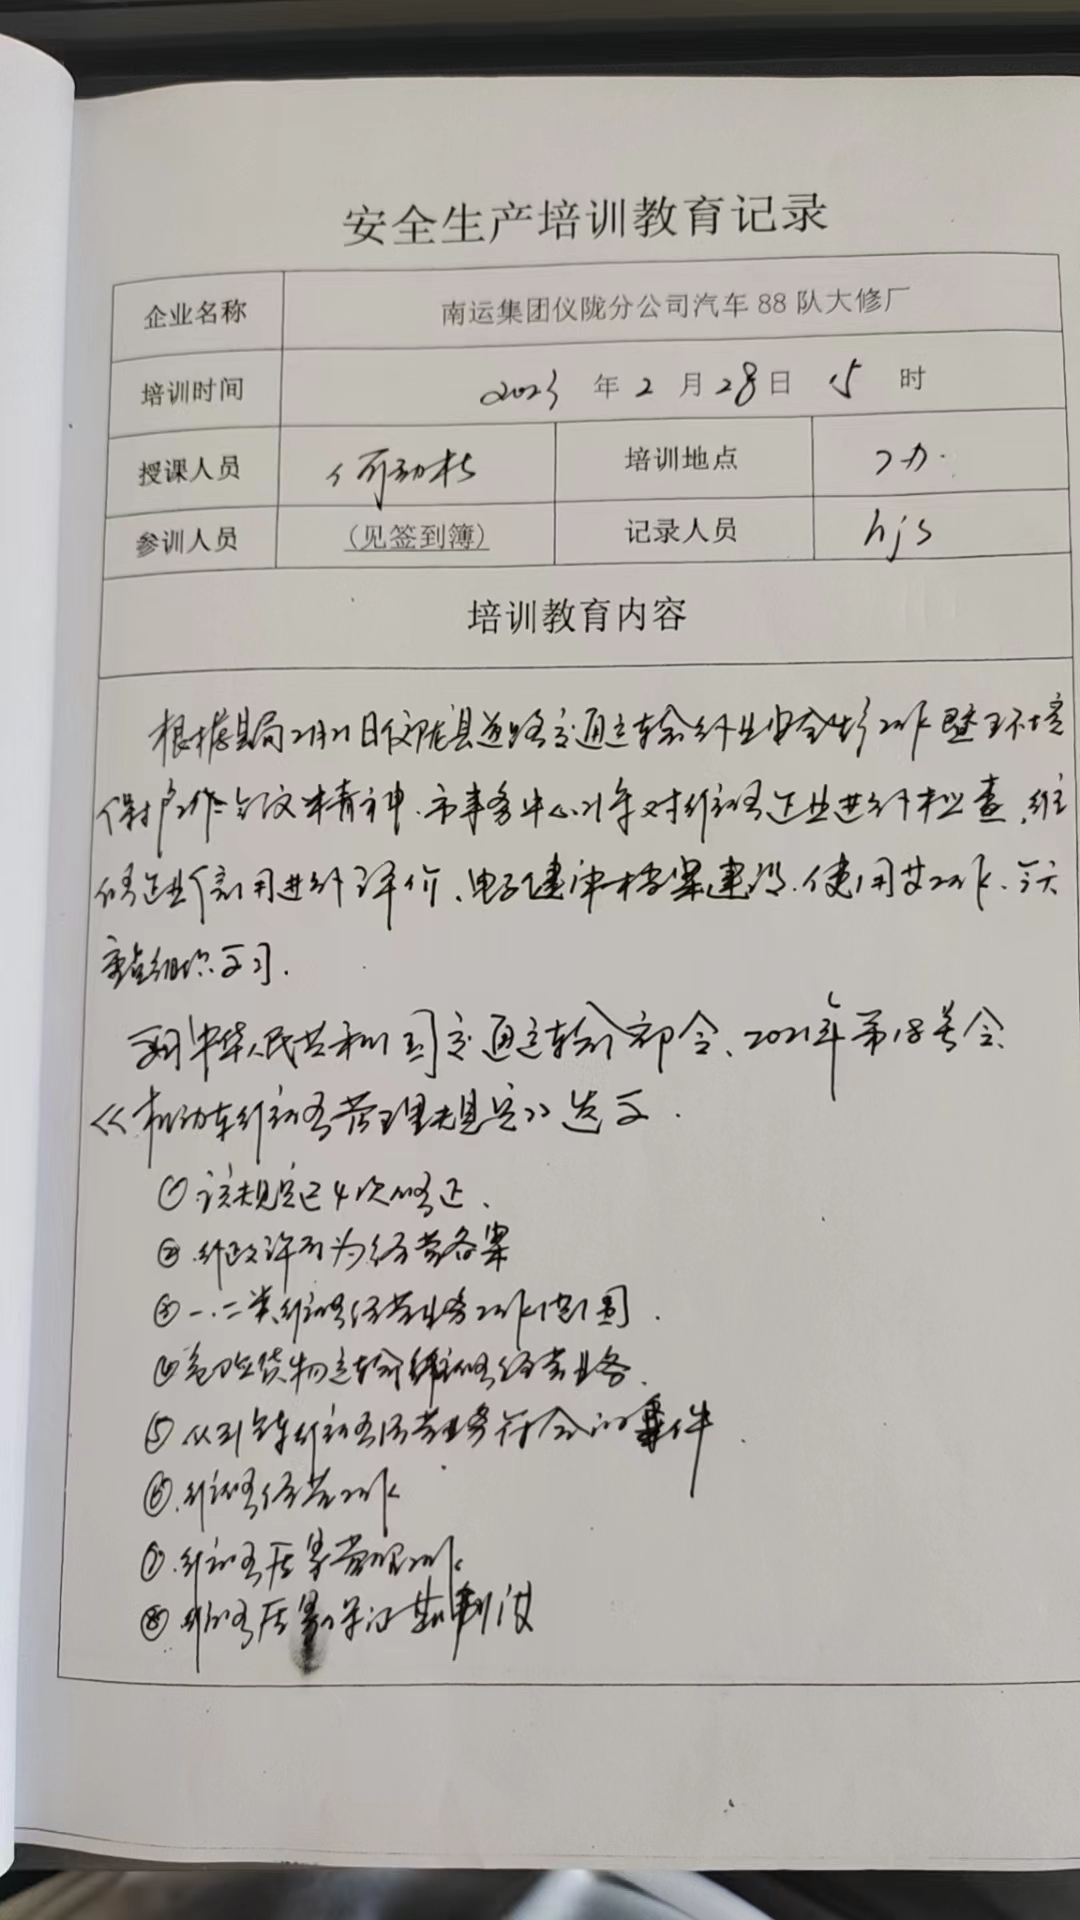 安全生产培训教育记录
企业名称 南运集团仪陇分公司汽车88队大修厂
培训时间 2023年2月28日 15时
授课人员 何劲松 培训地点
参训人员 (见签到簿) 记录人员 hjs
培训教育内容
根据县局2月21日仪陇县道路交通运输行业安全生产工作暨环境
保护工作会议精神.市事务中心将对维修企业进行检查,维
修企业信用进行评价、电子健康档案建设.使用等工作、今天
重点组织学习.
中华人民共和国交通运输部令、2021年第18号令
《机动车维修管理规定》选文.
①该规定已4次修正.
②行政许可为经营备案
③一.二类维修经营业务工作范围.
④危险货物运输维修经营业务.
⑤从事汽车维修经营业务符合的条件.
⑥.维修经营工作
⑦.维修质量管理工作
⑧维修质量保证期制度